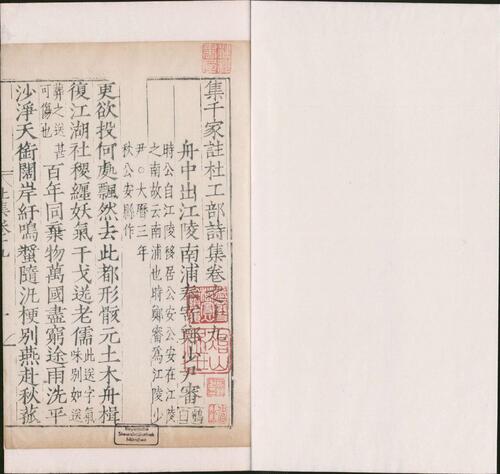 集千家註杜工部詩集卷之十九
舟中出江陵南浦奉寄鄭少尹審
時公自江陵移居公安公安在江陵
之南故云南浦也時鄭審爲江陵少
尹○大曆三年
秋公安縣作
更欲投何處飄然去此都形骸元土木舟楫
復江湖社稷纏妖氣干戈送老儒此送字氣
味別如送
葬之送甚
可傷也百年同棄物萬國盡窮途雨洗平
沙淨天銜闊岸紆鳴螿隨汎梗別燕赴秋菰
Bayerische
Staatsbibliothek
München